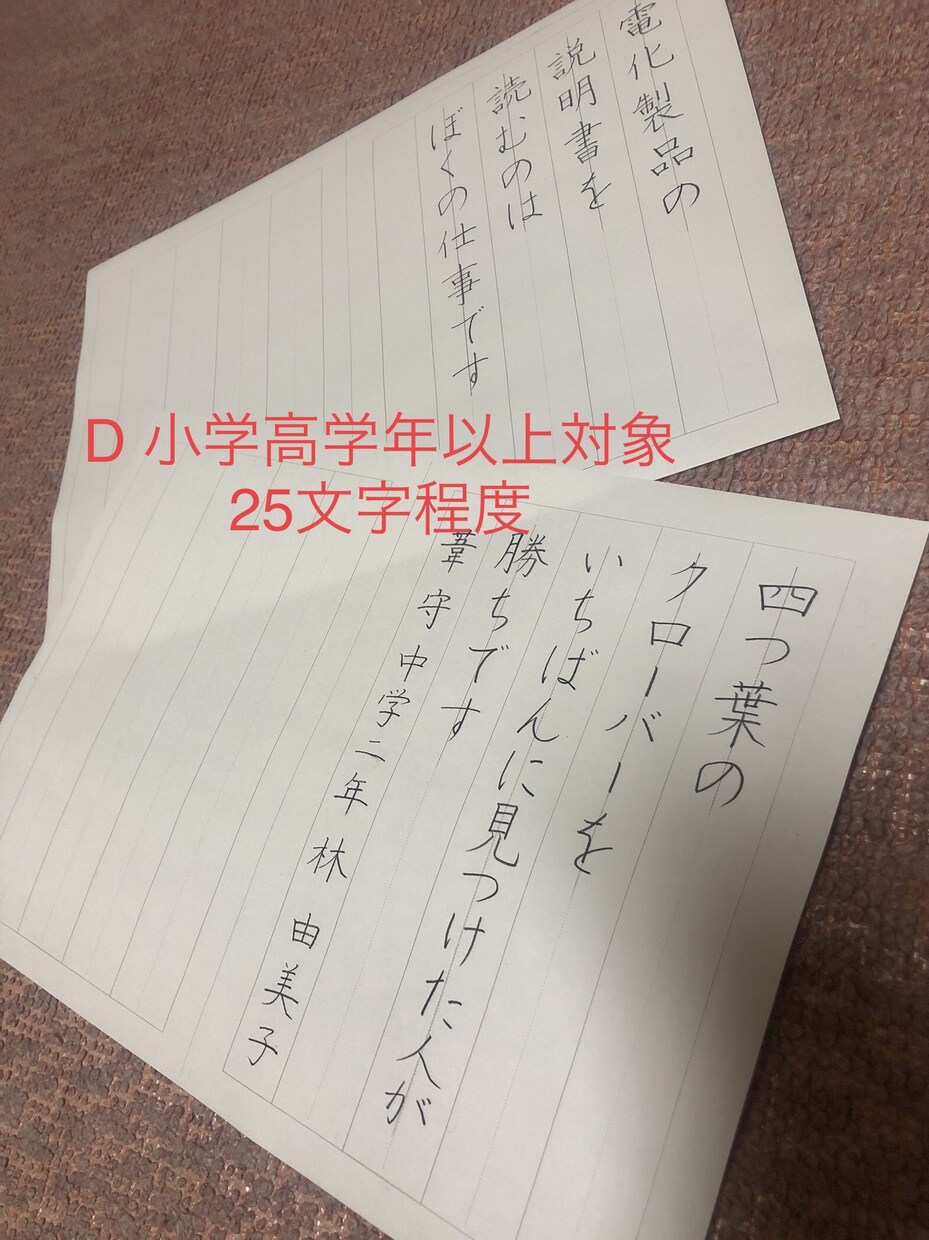 電化製品の
説明書を
読むのは
ぼくの仕事です
D 小学高学年以上対象
25文字程度
四つ葉の
クローバーを
いちばんに見つけた人が
勝ちです
葦守中学二年 林 由美子